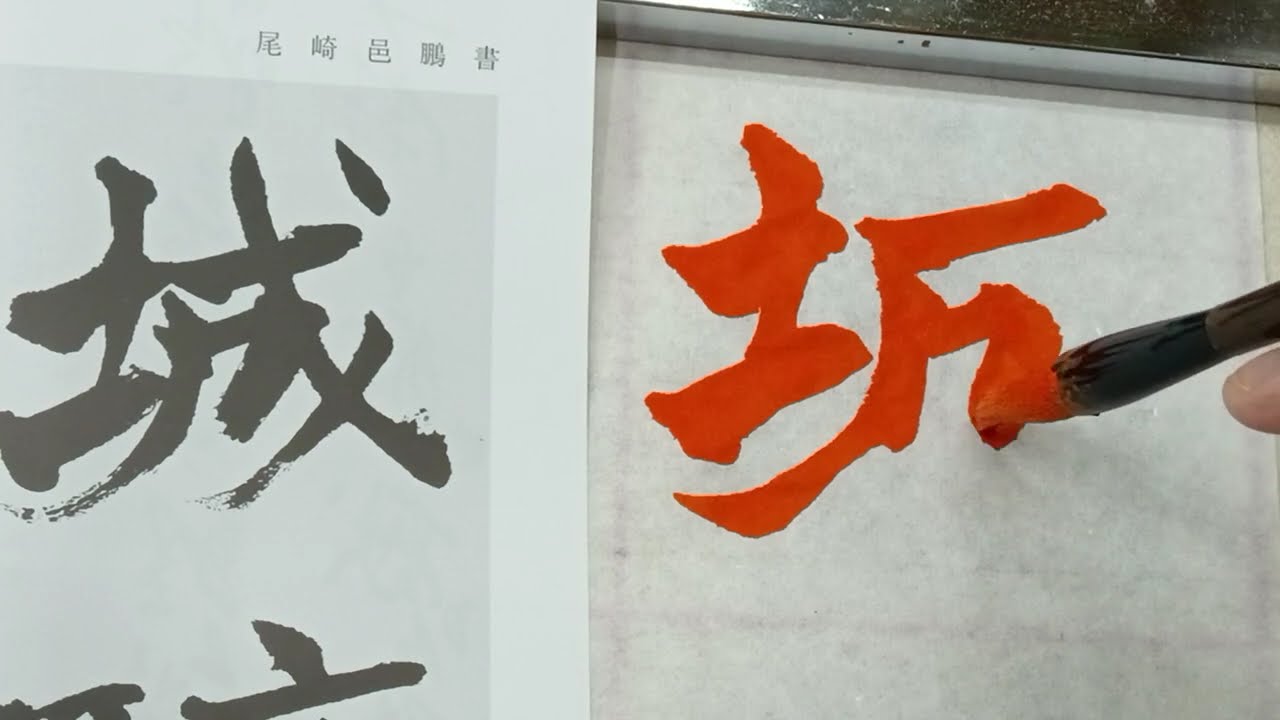 尾崎邑鵬書
城